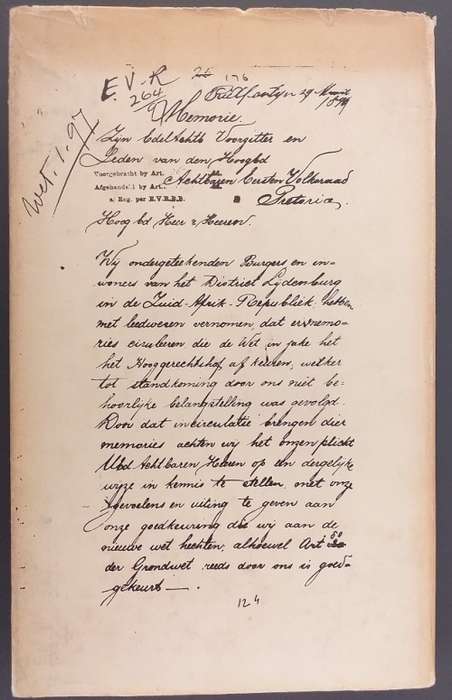 E.V.R 176
264
Wet. 1. 97
Memorie.
Zyn EdelAchtb Voorzitter en
Leden van den Hoogbd
Voorgebracht by Art.
Achtbaren Eersten Volksraad
Afgehandeld by Art.
a/ Reg. per E.V.R.B.B.
Pretoria.
Hoogbd Heer & Heeren.
Wy ondergeteekenden Burgers en in-
woners van het District Lydenburg
in de Zuid-Afrik-Republiek hebben
met leedwezen vernomen, dat er memo-
ries circuleren die de Wet in zake het
het Hooggerechtshof af keuren, welker
tot standkoming door ons met be-
hoorlijke belangstelling was gevolgd.
Door dat incirculatie brengen dier
memories achten wij het onzen plicht
UEd Achtbaren Heeren op dergelyke
wijze in kennis te stellen, met onze
gevoelens en uiting te geven aan
onze goedkeuring die wij aan de
nieuwe wet hechten, alhoewel Art 50
der Grondwet reeds door ons is goed-
gekeurd.
124